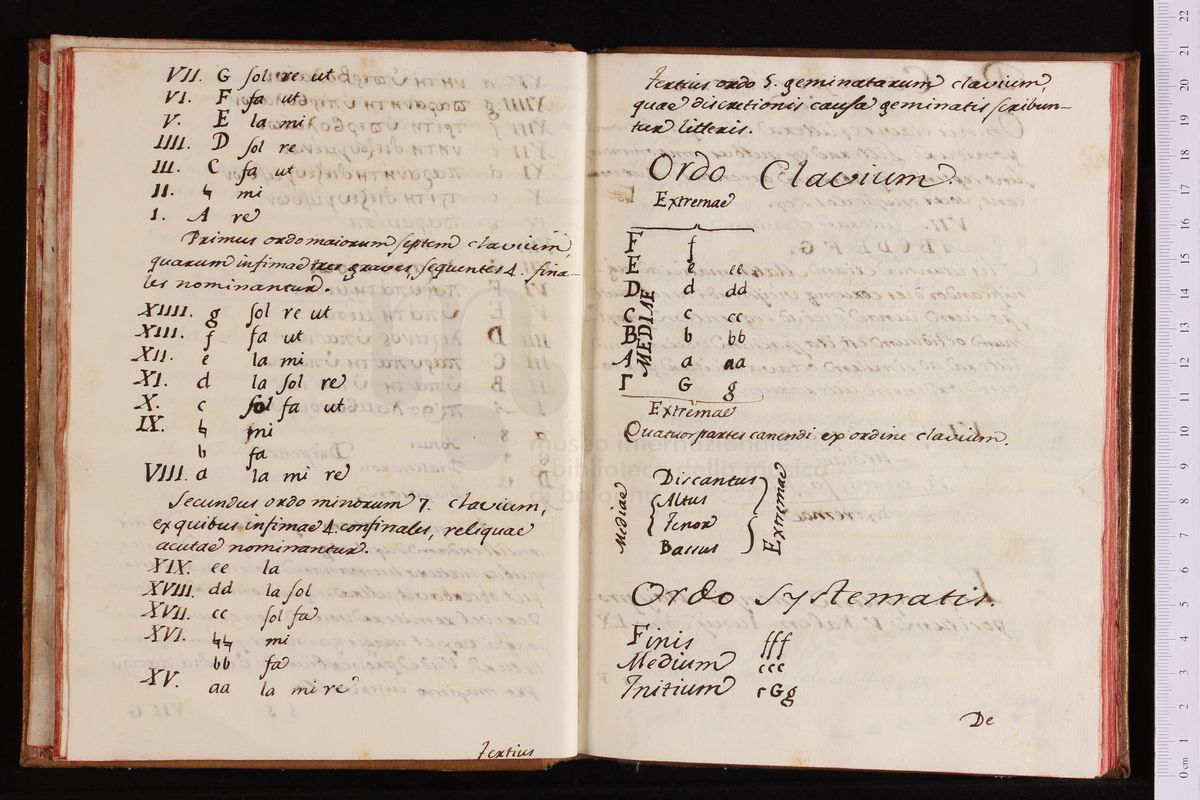 VII. G sol re ut
VI. F fa ut
V. E la mi
IIII. D sol re
III. C fa ut
II. ♮ mi
I. A re
Primus ordo maiorum septem clavium,
quarum infimae tres graves, sequentes 4. fina-
les nominantur.
XIIII. g sol re ut
XIII. f fa ut
XII. e la mi
XI. d la sol re
X. c sol fa ut
IX. ♮ mi
b fa
VIII. a la mi re
Secundus ordo minorum 7. clavium,
ex quibus infimae 4 confinales, reliquae
acutae nominantur.
XIX. ee la
XVIII. dd la sol
XVII. cc sol fa
XVI. ♮♮ mi
bb fa
XV. aa la mi re
Tertius
Tertius ordo 5. geminatarum clavium,
quae discretionis causa geminatis scribun-
tur litteris.
Ordo Clavium.
Extremae
F f
E e ee
D d dd
C c cc
B b bb
A a aa
Γ G g
MEDIAE
Extremae
Quatuor partes canendi ex ordine clavium.
Discantus
Altus
Tenor
Bassus
Mediae
Extremae
Ordo Systematis.
Finis fff
Medium ccc
Initium ΓGg
De
museo internazionale
e biblioteca della musica
di bologna
22
21
20
19
18
17
16
15
14
13
12
11
10
9
8
7
6
5
4
3
2
1
0 cm